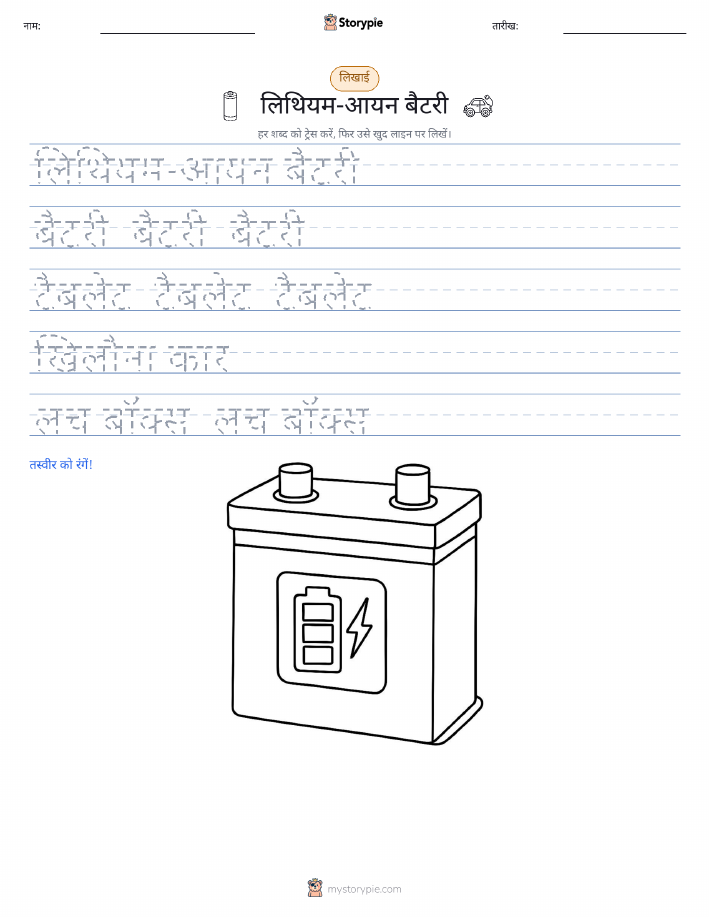 नाम:
Storypie
तारीख:
लिखाई
लिथियम-आयन बैटरी
हर शब्द को ट्रेस करें, फिर उसे खुद लाइन पर लिखें।
लिथियम-आयन बैटरी
बैटरी बैटरी बैटरी
टैबलेट टैबलेट टैबलेट
खिलौना कार
लंच बॉक्स लंच बॉक्स
तस्वीर को रंगें!
mystorypie.com